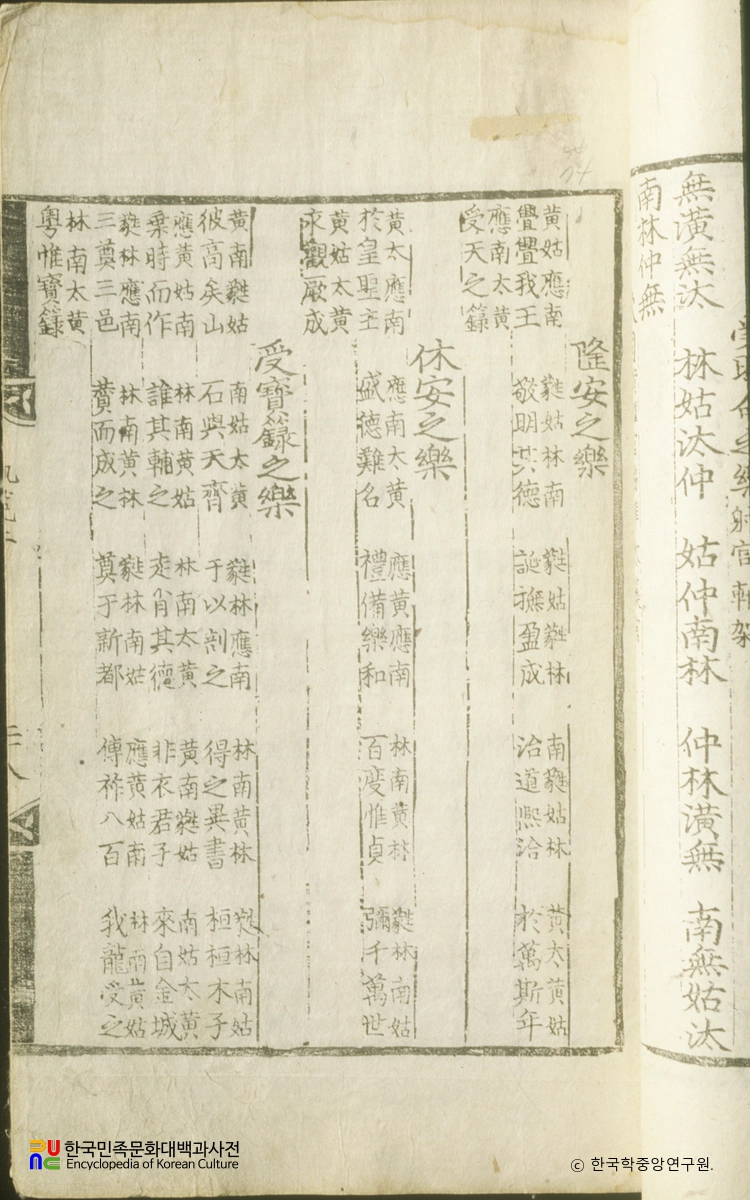 之樂射宮軒架
無潢無汰 林姑汰仲 姑仲南林 仲林潢無 南無姑汰
南林仲無
隆安之樂
黃姑應南 㽔姑林南 㽔姑㽔林 南㽔姑林 黃太黃姑
亹亹我王 敬明其德 誕撫盈成 治道熙洽 於萬斯年
應南太黃
受天之籙
休安之樂
黃太應南 應南太黃 應黃應南 林南黃林 㽔林南姑
於皇聖主 盛德難名 禮備樂和 百度惟貞 彌千萬世
黃姑太黃
永觀厥成
受寶籙之樂
黃南㽔姑 南姑太黃 㽔林應南 林南黃林 㽔林南姑
彼高矣山 石與天齊 于以剖之 得之異書 桓桓木子
應黃姑南 林南黃姑 林南太黃 黃南㽔姑 南姑太黃
乘時而作 誰其輔之 走肖其德 非衣君子 來自金城
㽔林應南 林南黃林 㽔林南姑 應黃姑南 林南黃姑
三奠三邑 贊而成之 奠于新都 傳祚八百 我龍受之
林南太黃
粤惟寶籙
한국민족문화대백과사전
Encyclopedia of Korean Culture
ⓒ 한국학중앙연구원.